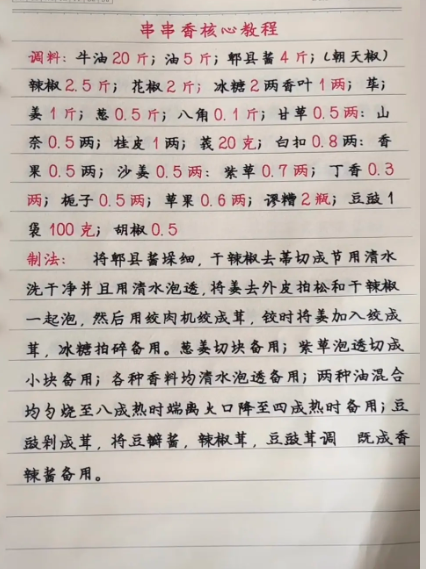 串串香核心教程
调料：牛油20斤；油5斤；郫县酱4斤；（朝天椒）
辣椒2.5斤；花椒2斤；冰糖2两香叶1两；草；
姜1斤；葱0.5斤；八角0.1斤；甘草0.5两：山
奈0.5两；桂皮1两；菝20克；白扣0.8两：香
果0.5两；沙姜0.5两：紫草0.7两；丁香0.3
两；栀子0.5两；草果0.6两；谬糟2瓶；豆豉1
袋100克；胡椒0.5
制法：将郫县酱垛细，干辣椒去蒂切成节用清水
洗干净并且用清水泡透，将姜去外皮拍松和干辣椒
一起泡，然后用绞肉机绞成茸，铰时将姜加入绞成
茸，冰糖拍碎备用。葱姜切块备用；紫草泡透切成
小块备用；各种香料均清水泡透备用；两种油混合
均匀烧至八成热时端离火口降至四成热时备用；豆
豉剁成茸，将豆瓣酱，辣椒茸，豆豉茸调 既成香
辣酱备用。